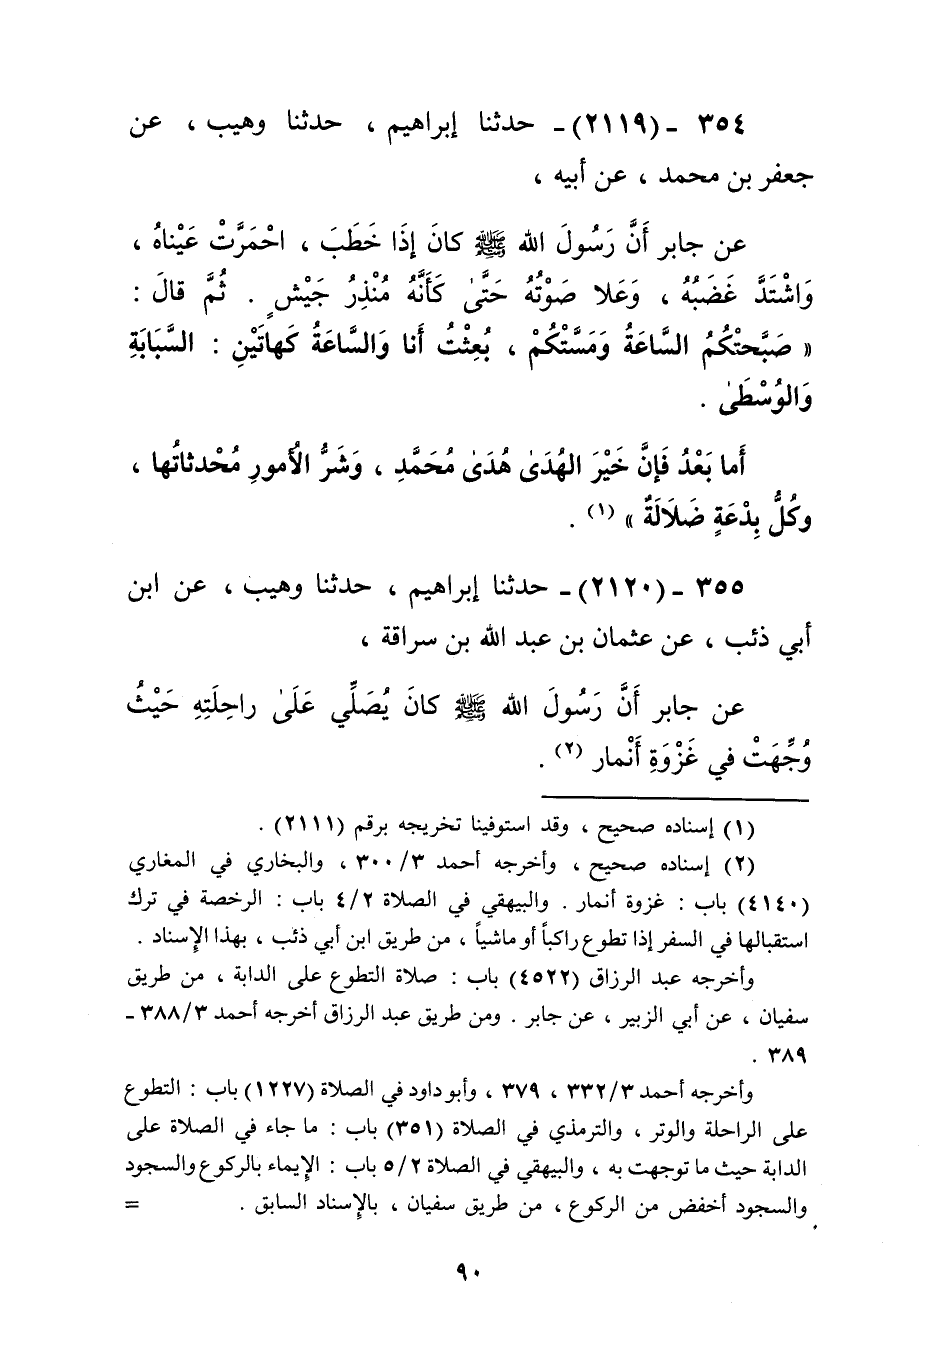 ٣٥٤ ـ (٢١١٩) ـ حدثنا إبراهيم ، حدثنا وهيب ، عن
جعفر بن محمد ، عن أبيه ،
عن جابر أَنَّ رَسُولَ الله ﷺ كانَ إِذَا خَطَبَ ، احْمَرَّتْ عَيْناهُ ،
وَاشْتَدَّ غَضَبُهُ ، وَعَلا صَوْتُهُ حَتَّىٰ كَأَنَّهُ مُنْذِرُ جَيْشٍ . ثُمَّ قالَ :
« صَبَّحتْكُمُ السَّاعَةُ وَمَسَّتْكُمْ ، بُعِثْتُ أَنا وَالسَّاعَةُ كَهاتَيْنِ : السَّبَابَةِ
وَالوُسْطَىٰ .
أَما بَعْدُ فَإِنَّ خَيْرَ الهُدَىٰ هُدَىٰ مُحَمَّدٍ ، وَشَرُّ الأُمورِ مُحْدثاتُها ،
وكُلُّ بِدْعَةٍ ضَلَالَةٌ » (١) .
٣٥٥ ـ (٢١٢٠) ـ حدثنا إبراهيم ، حدثنا وهيب ، عن ابن
أبي ذئب ، عن عثمان بن عبد الله بن سراقة ،
عن جابر أَنَّ رَسُولَ الله ﷺ كانَ يُصَلِّي عَلَىٰ راحِلَتِهِ حَيْثُ
وُجِّهَتْ في غَزْوَةِ أَنْمار (٢) .
(١) إسناده صحيح ، وقد استوفينا تخريجه برقم (٢١١١) .
(٢) إسناده صحيح ، وأخرجه أحمد ٣/ ٣٠٠ ، والبخاري في المغازي
(٤١٤٠) باب : غزوة أنمار . والبيهقي في الصلاة ٢/ ٤ باب : الرخصة في ترك
استقبالها في السفر إذا تطوع راكباً أو ماشياً ، من طريق ابن أبي ذئب ، بهذا الإسناد .
وأخرجه عبد الرزاق (٤٥٢٢) باب : صلاة التطوع على الدابة ، من طريق
سفيان ، عن أبي الزبير ، عن جابر . ومن طريق عبد الرزاق أخرجه أحمد ٣/ ٣٨٨ ـ
٣٨٩ .
وأخرجه أحمد ٣/ ٣٣٢ ، ٣٧٩ ، وأبو داود في الصلاة (١٢٢٧) باب : التطوع
على الراحلة والوتر ، والترمذي في الصلاة (٣٥١) باب : ما جاء في الصلاة على
الدابة حيث ما توجهت به ، والبيهقي في الصلاة ٢/ ٥ باب : الإيماء بالركوع والسجود
والسجود أخفض من الركوع ، من طريق سفيان ، بالإسناد السابق . =
٩٠